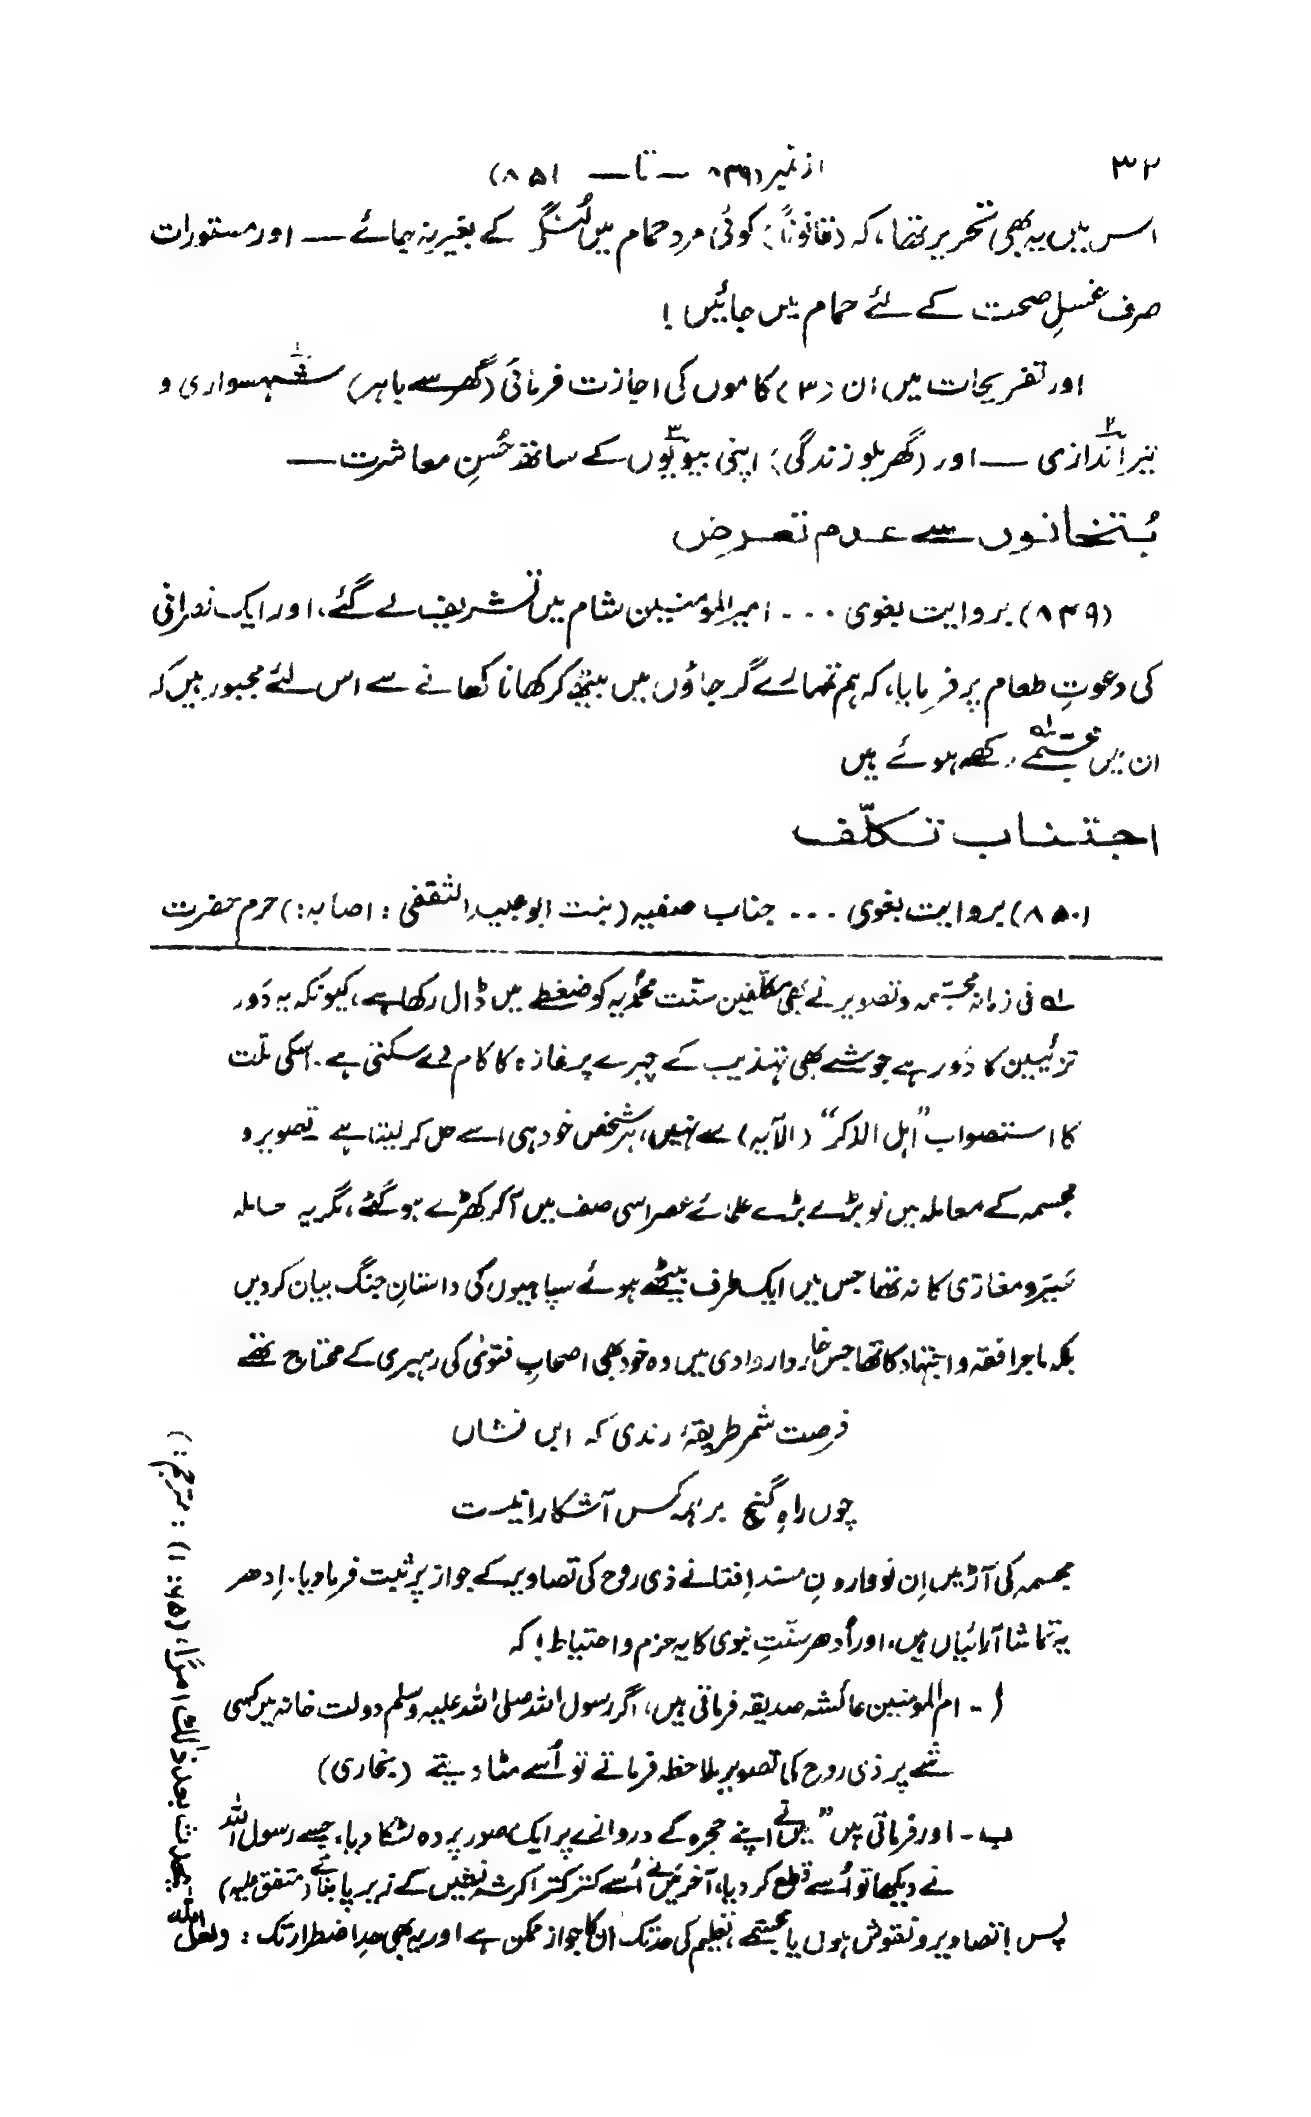 ۳۲
از نمبر (۸۴۹ — تا — ۸۵۱)
اس میں یہ بھی تحریر تھا، کہ (قانوناً) کوئی مرد حمام میں لنگر کے بغیر نہ نہائے — اور مستورات
صرف غسلِ صحت کے لئے حمام میں جائیں !
اور تفریحات میں ان (۳) کاموں کی اجازت فرمائی (گھر سے باہر) شہسواری و
تیراندازی — اور (گھریلو زندگی) اپنی بیویوں کے ساتھ حُسنِ معاشرت —
بُتخانوں سے عدم تعرض
(۸۴۹) بروایت بغوی ... امیرالمومنین شام میں تشریف لے گئے، اور ایک نصرانی
کی دعوتِ طعام پر فرمایا، کہ ہم تمہارے گرجاؤں میں بیٹھ کر کھانا کھانے سے اس لئے مجبور ہیں کہ
ان میں مجسمے رکھے ہوئے ہیں
اجتناب تکلّف
(۸۵۰) بروایت بغوی ... جناب صفیہ (بنت ابو عبید الثقفی : اصابہ :) حرم حضرت
لہ فی زمانہ مجسّمہ و تصویر نے بھی مکلّفین سنّت محمدیہ کو ضغطے میں ڈال رکھا ہے، کیونکہ یہ دَور
تزئیین کا دَور ہے جو شے بھی تہذیب کے چہرے پر غازہ کا کام دے سکتی ہے۔ اسکی حلّت
کا استصواب "اہل الذکر" (الآیہ) سے نہیں، ہر شخص خود ہی اسے حل کر لیتا ہے تصویر و
مجسمہ کے معاملہ میں تو بڑے بڑے علمائے عصر اسی صف میں آ کر کھڑے ہو گئے، مگر یہ معاملہ
سِیَر و مغازی کا نہ تھا جس میں ایک طرف بیٹھے ہوئے سپاہیوں کی داستانِ جنگ بیان کر دیں
بلکہ ماجرا فقہ و اجتہاد کا تھا جس خاردار وادی میں وہ خود بھی اصحابِ فتویٰ کی رہبری کے محتاج تھے
فرصت شمر طریقۂ رندی کہ ایں نشاں
چوں راہِ گنج بر ہمہ کس آشکارا نیست
مجسمہ کی آڑ میں اِن نوواردونِ مسند اِفتا نے ذی روح کی تصاویر کے جواز پر ثبت فرما دیا۔ اِدھر
یہ تماشا آرائیاں ہیں، اور اُدھر سنّتِ نبوی کا یہ حزم و احتیاط! کہ
ا - ام المومنین عائشہ صدیقہ فرماتی ہیں، اگر رسول اللہ صلی اللہ علیہ وسلم دولت خانہ میں کسی
شے پر ذی روح کی تصویر ملاحظہ فرماتے تو اُسے مٹا دیتے (بخاری)
ب - اور فرماتی ہیں "میں نے اپنے حجرہ کے دروازے پر ایک مصور پردہ لٹکا دیا، جسے رسول اللہ
نے دیکھا تو اُسے قطع کر دیا، آخر میں نے اُسے کتر کترا کر شہ نشیں کے زیر پا بنائے (متفق علیہ)
پس! تصاویر و نقوش ہوں یا مجسمے، تعلیم کی حد تک ان کا جواز ممکن ہے اور یہ بھی حدِ اضطرار تک : ولعل اللہ
یحدث بعد ذلک امرًا، (۶۵ : ۱) : مترجم :)